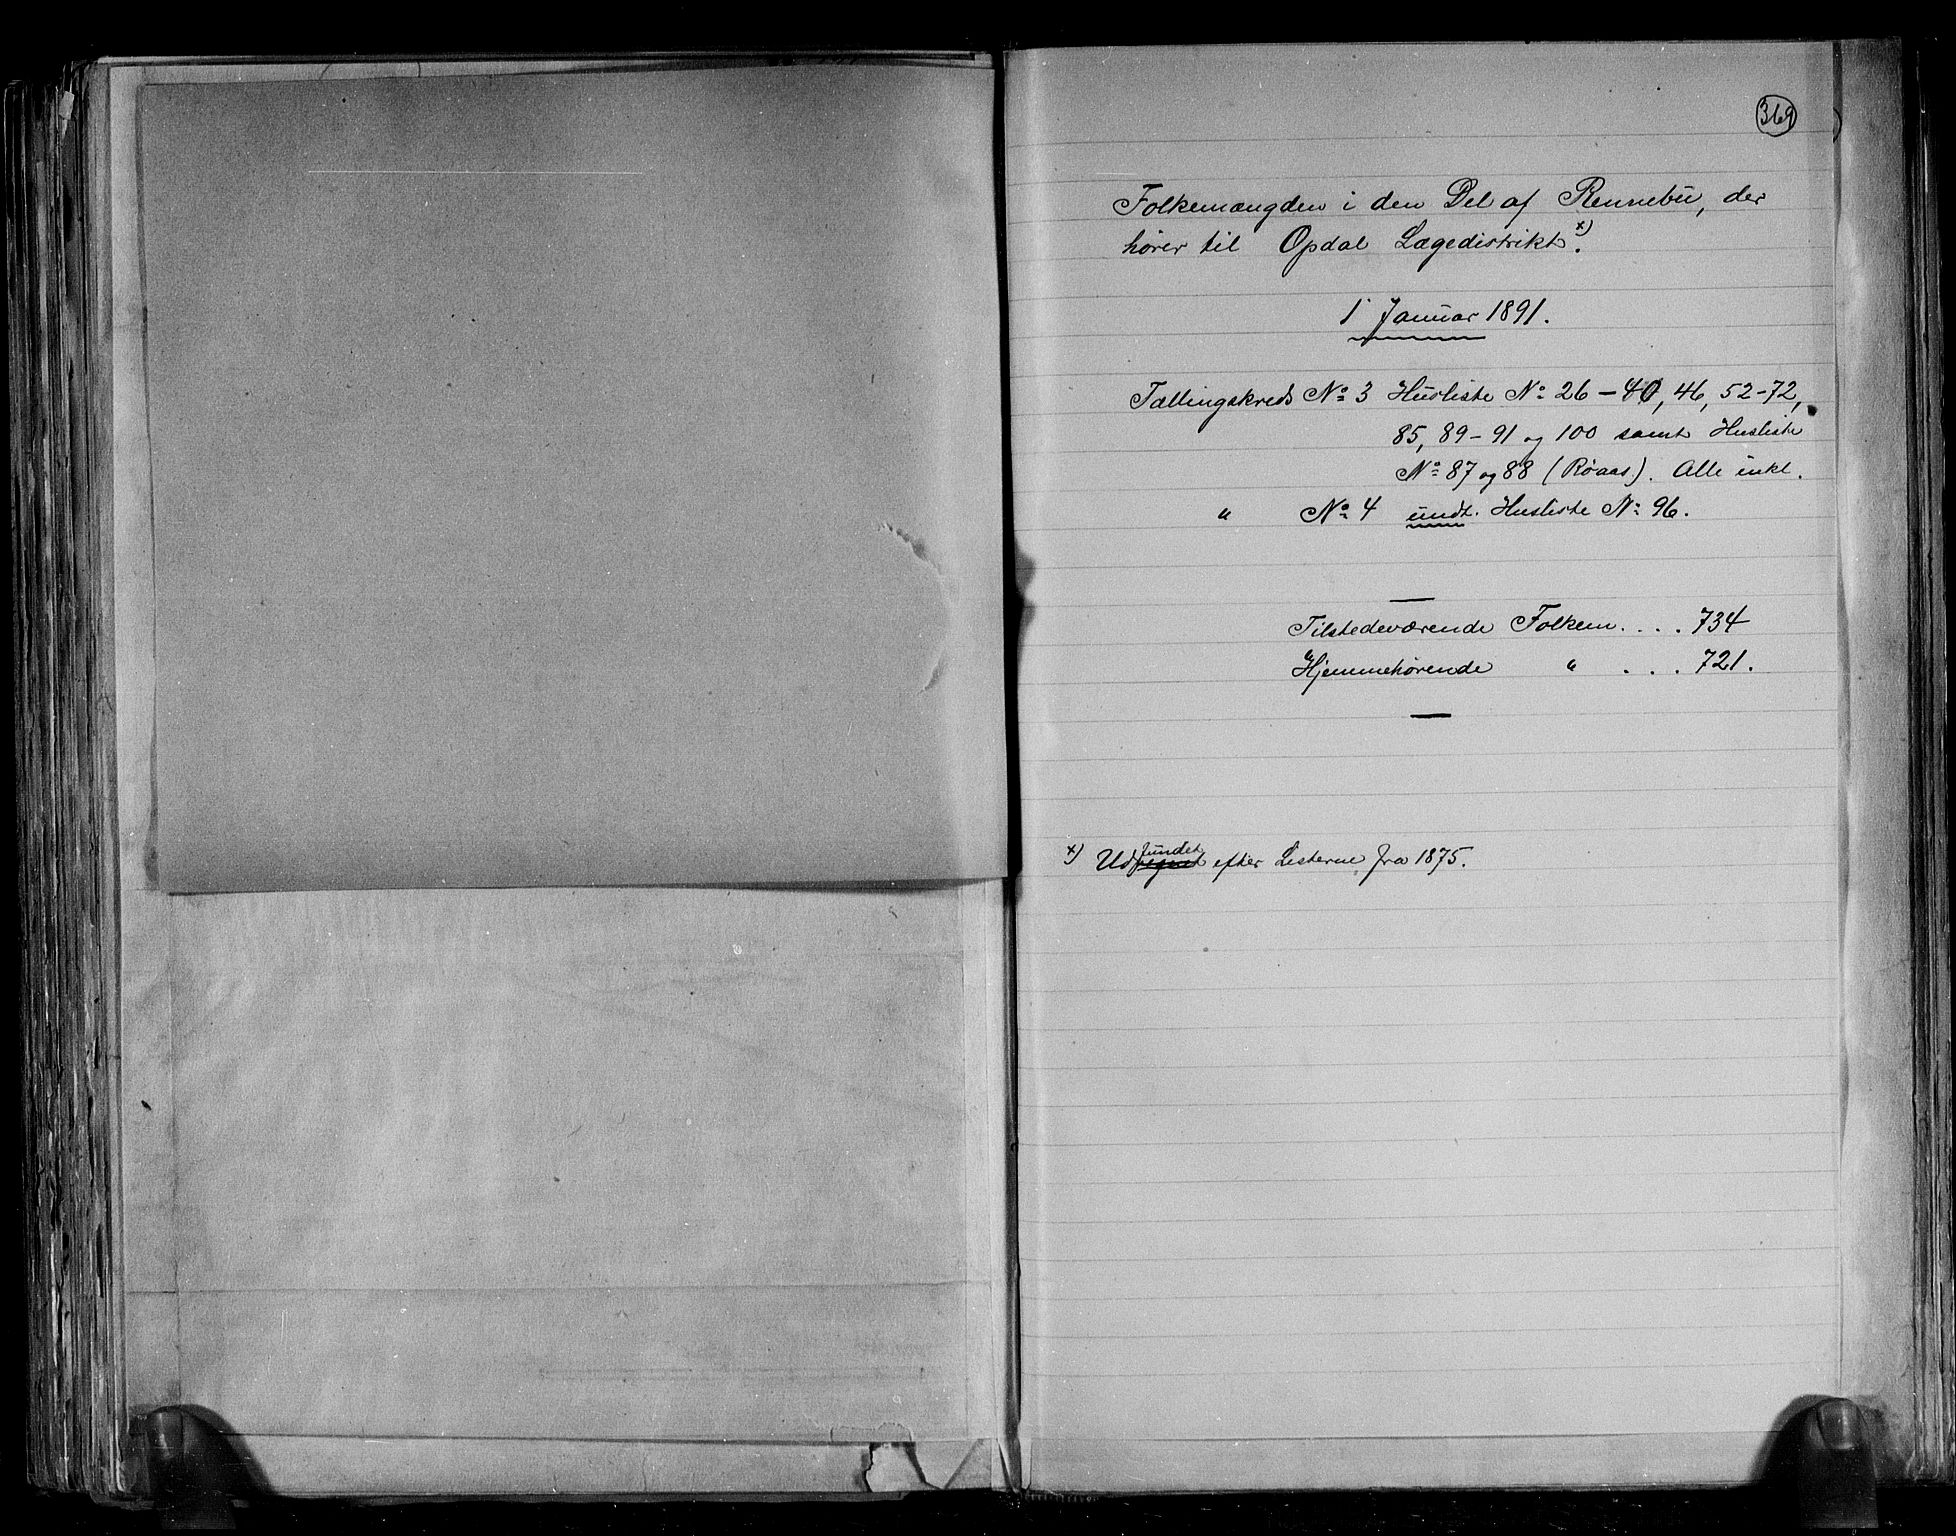 369
Folkemængden i den Del af Rennebu, der
hører til Opdal Lægedistrikt x).
1 Januar 1891.
Tællingskreds No 3 Husliste No 26 – 40, 46, 52-72,
85, 89-91 og 100 samt Husliste
No 87 og 88 (Røaas). Alle inkl.
" No 4 undt. Husliste No 96.
Tilstedeværende Folkem. . . . 734
Hjemmehørende " . . . 721.
fundet
x) Udregnet efter Listerne fra 1875.